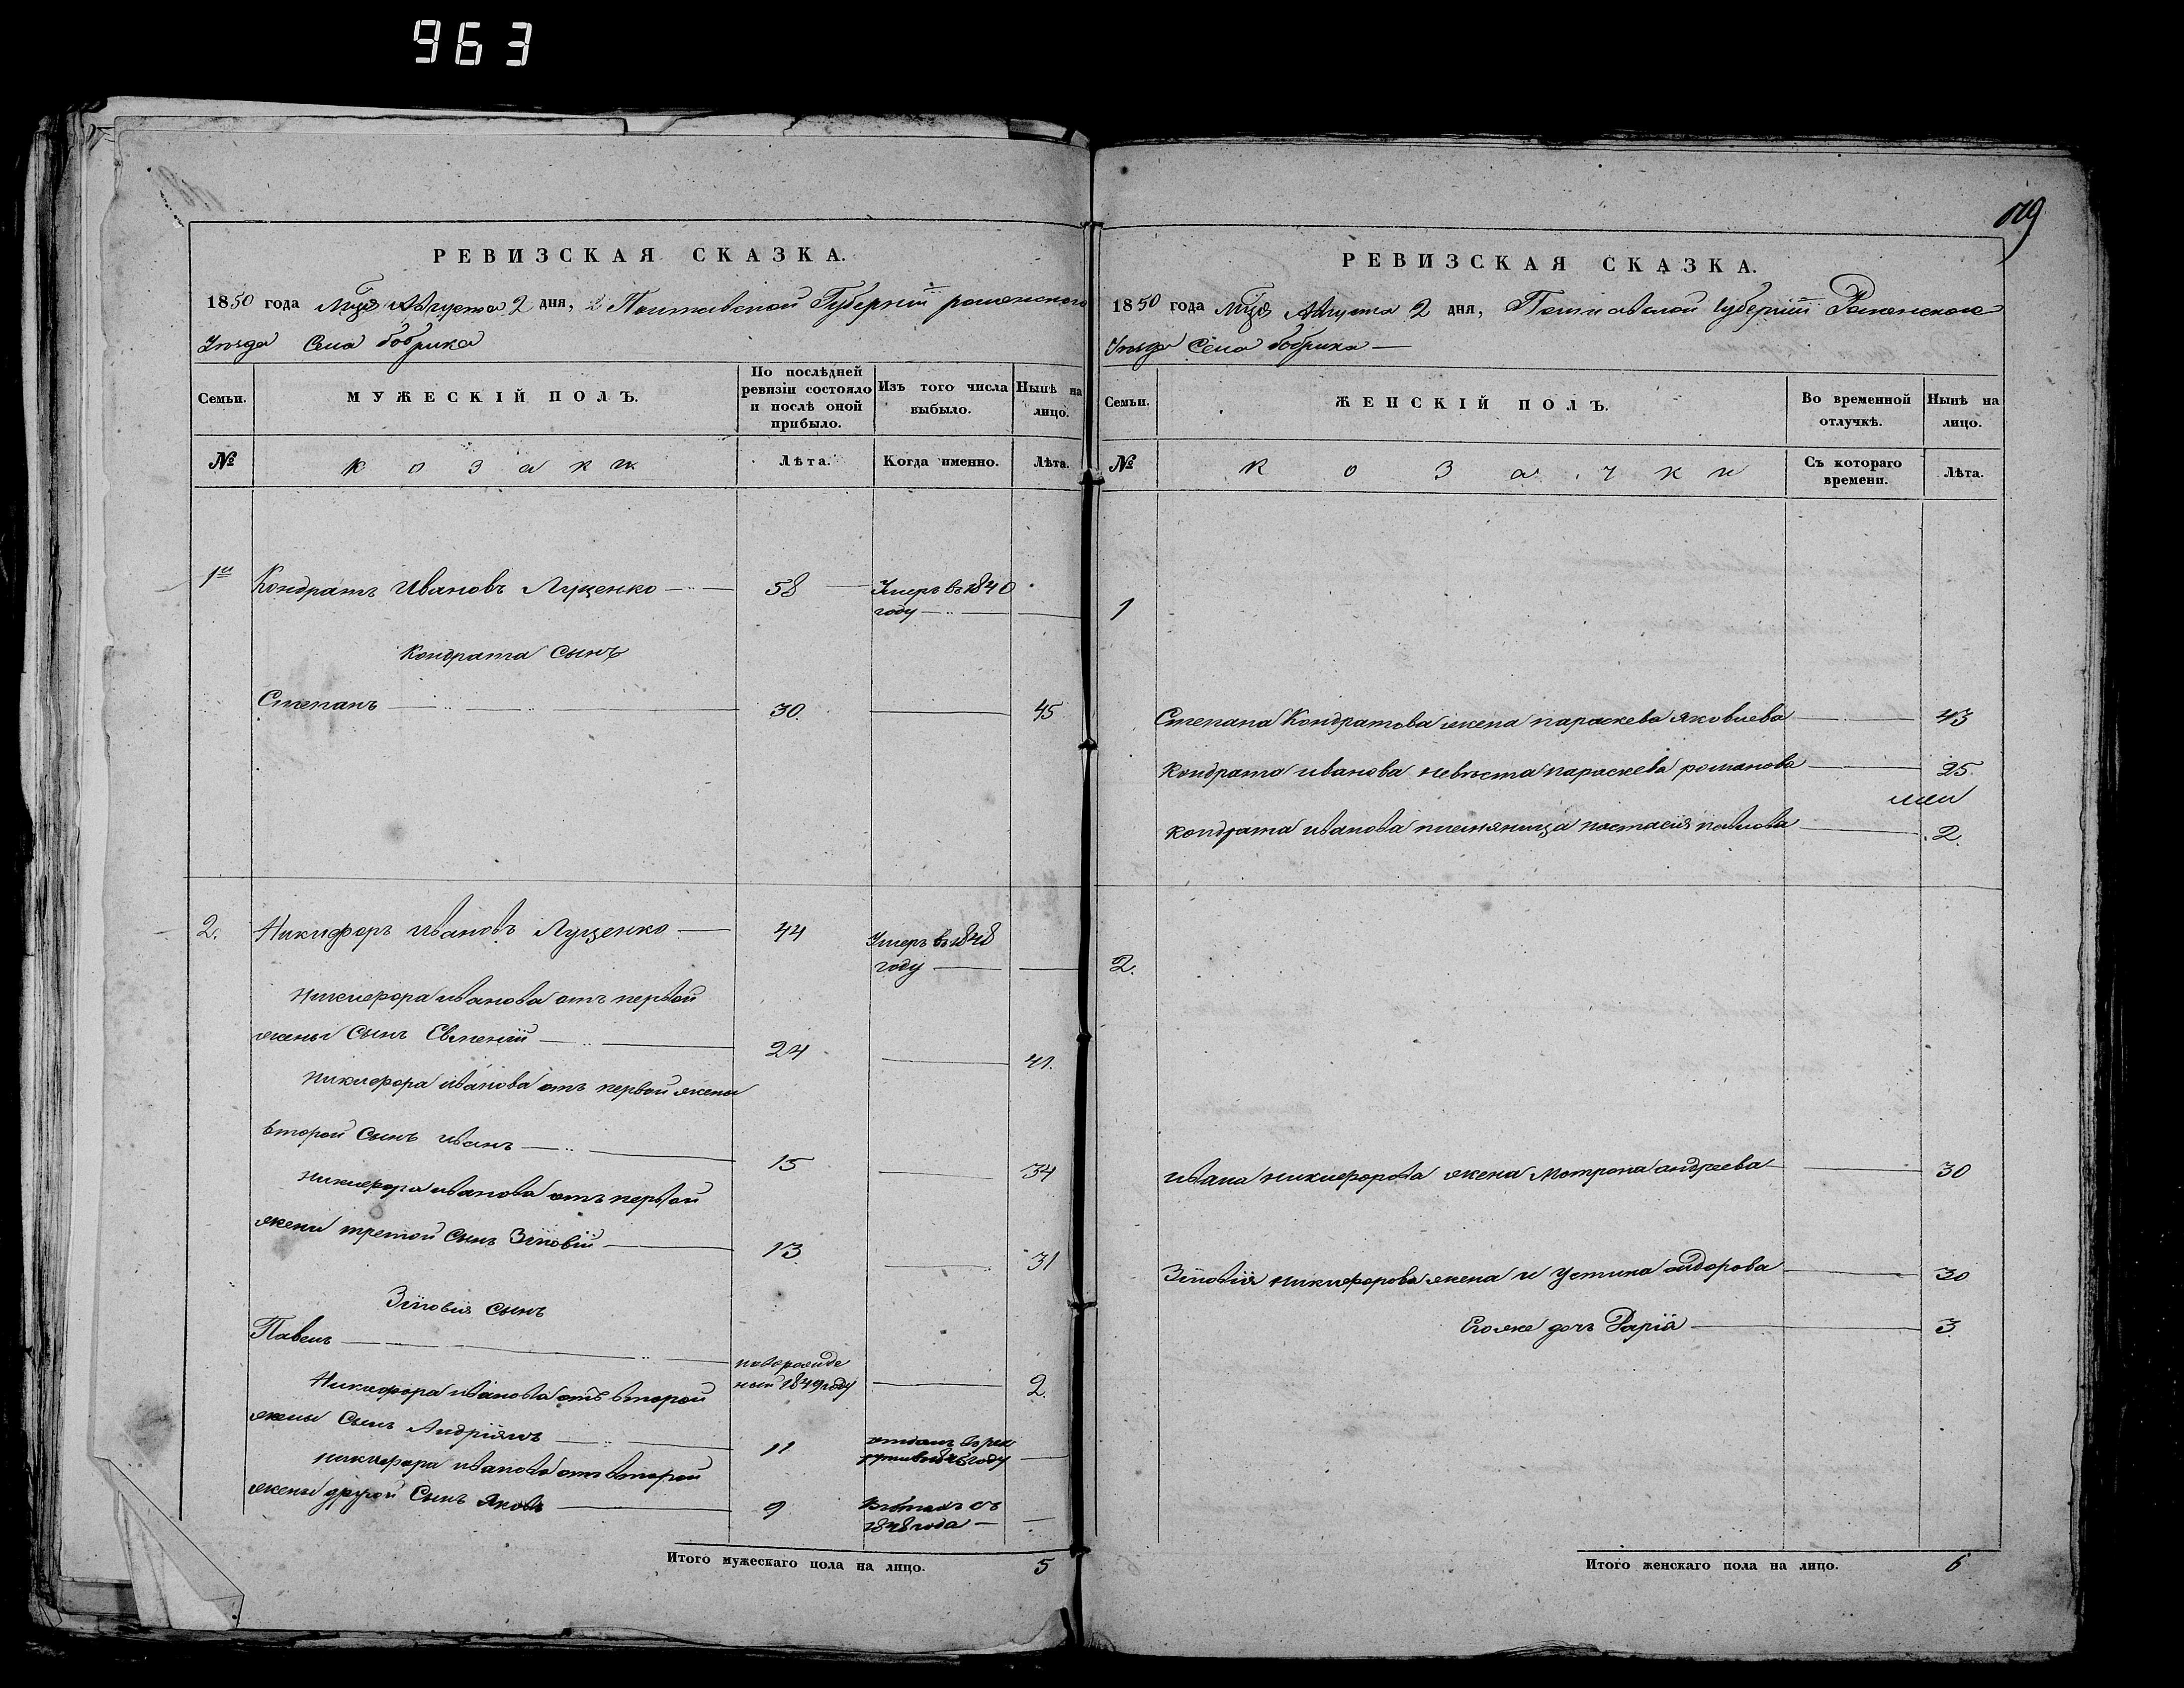 963
РЕВИЗСКАЯ СКАЗКА.
1850 года Мца Августа 2 дня, Полтавской Губерніи роменского
Уезда Села бобрика
Семьи.
МУЖЕСКІЙ ПОЛЪ.
По послѣдней ревизіи состояло и послѣ оной прибыло.
Изъ того числа выбыло.
Нынѣ на лицо.
№
козаки
Лѣта.
Когда именно.
Лѣта.
1й Кондратъ Ивановъ Луценко 58 Умеръ въ 1840
году
Кондрата Сынъ
Степанъ 30. 45
2. Никифоръ Ивановъ Луценко 44 Умеръ в 1848
году
Никифора иванова отъ первой
жены Сынъ Евмений 24 41.
Никифора иванова отъ первой жены
второй Сынъ иванъ 15 34
Никифора иванова отъ первой
жени третой Сынъ Зіновій 13. 31
Зіновия сынъ
Павелъ
новорожде
ный 1849 году 2.
Никифора иванова отъ второй
жены Сынъ Андріянъ 11 отданъ в рек
году
Никифора иванова отъ второй
жены другой Сынъ Яковъ 9 съ
1848 года
Итого мужескаго пола на лицо. 5
179
РЕВИЗСКАЯ СКАЗКА.
1850 года Мца Августа 2 дня, Полтавской губерніи Роменского
Уезда Села бобрика
Семьи.
ЖЕНСКІЙ ПОЛЪ.
Во временной отлучкѣ.
Нынѣ на лицо.
№
козачки
Съ котораго времени.
Лѣта.
1
Степана Кондратова жена параскева яковлева 43
Кондрата иванова невѣста параскева романова 25.
Кондрата иванова племяница настасия павлова 2.
2.
ивана никифорова жена Мотрона андреева 30
Зіновія никифорова жена Устина сидорова 30
Егоже дочь Дарія 3
Итого женскаго пола на лицо. 6